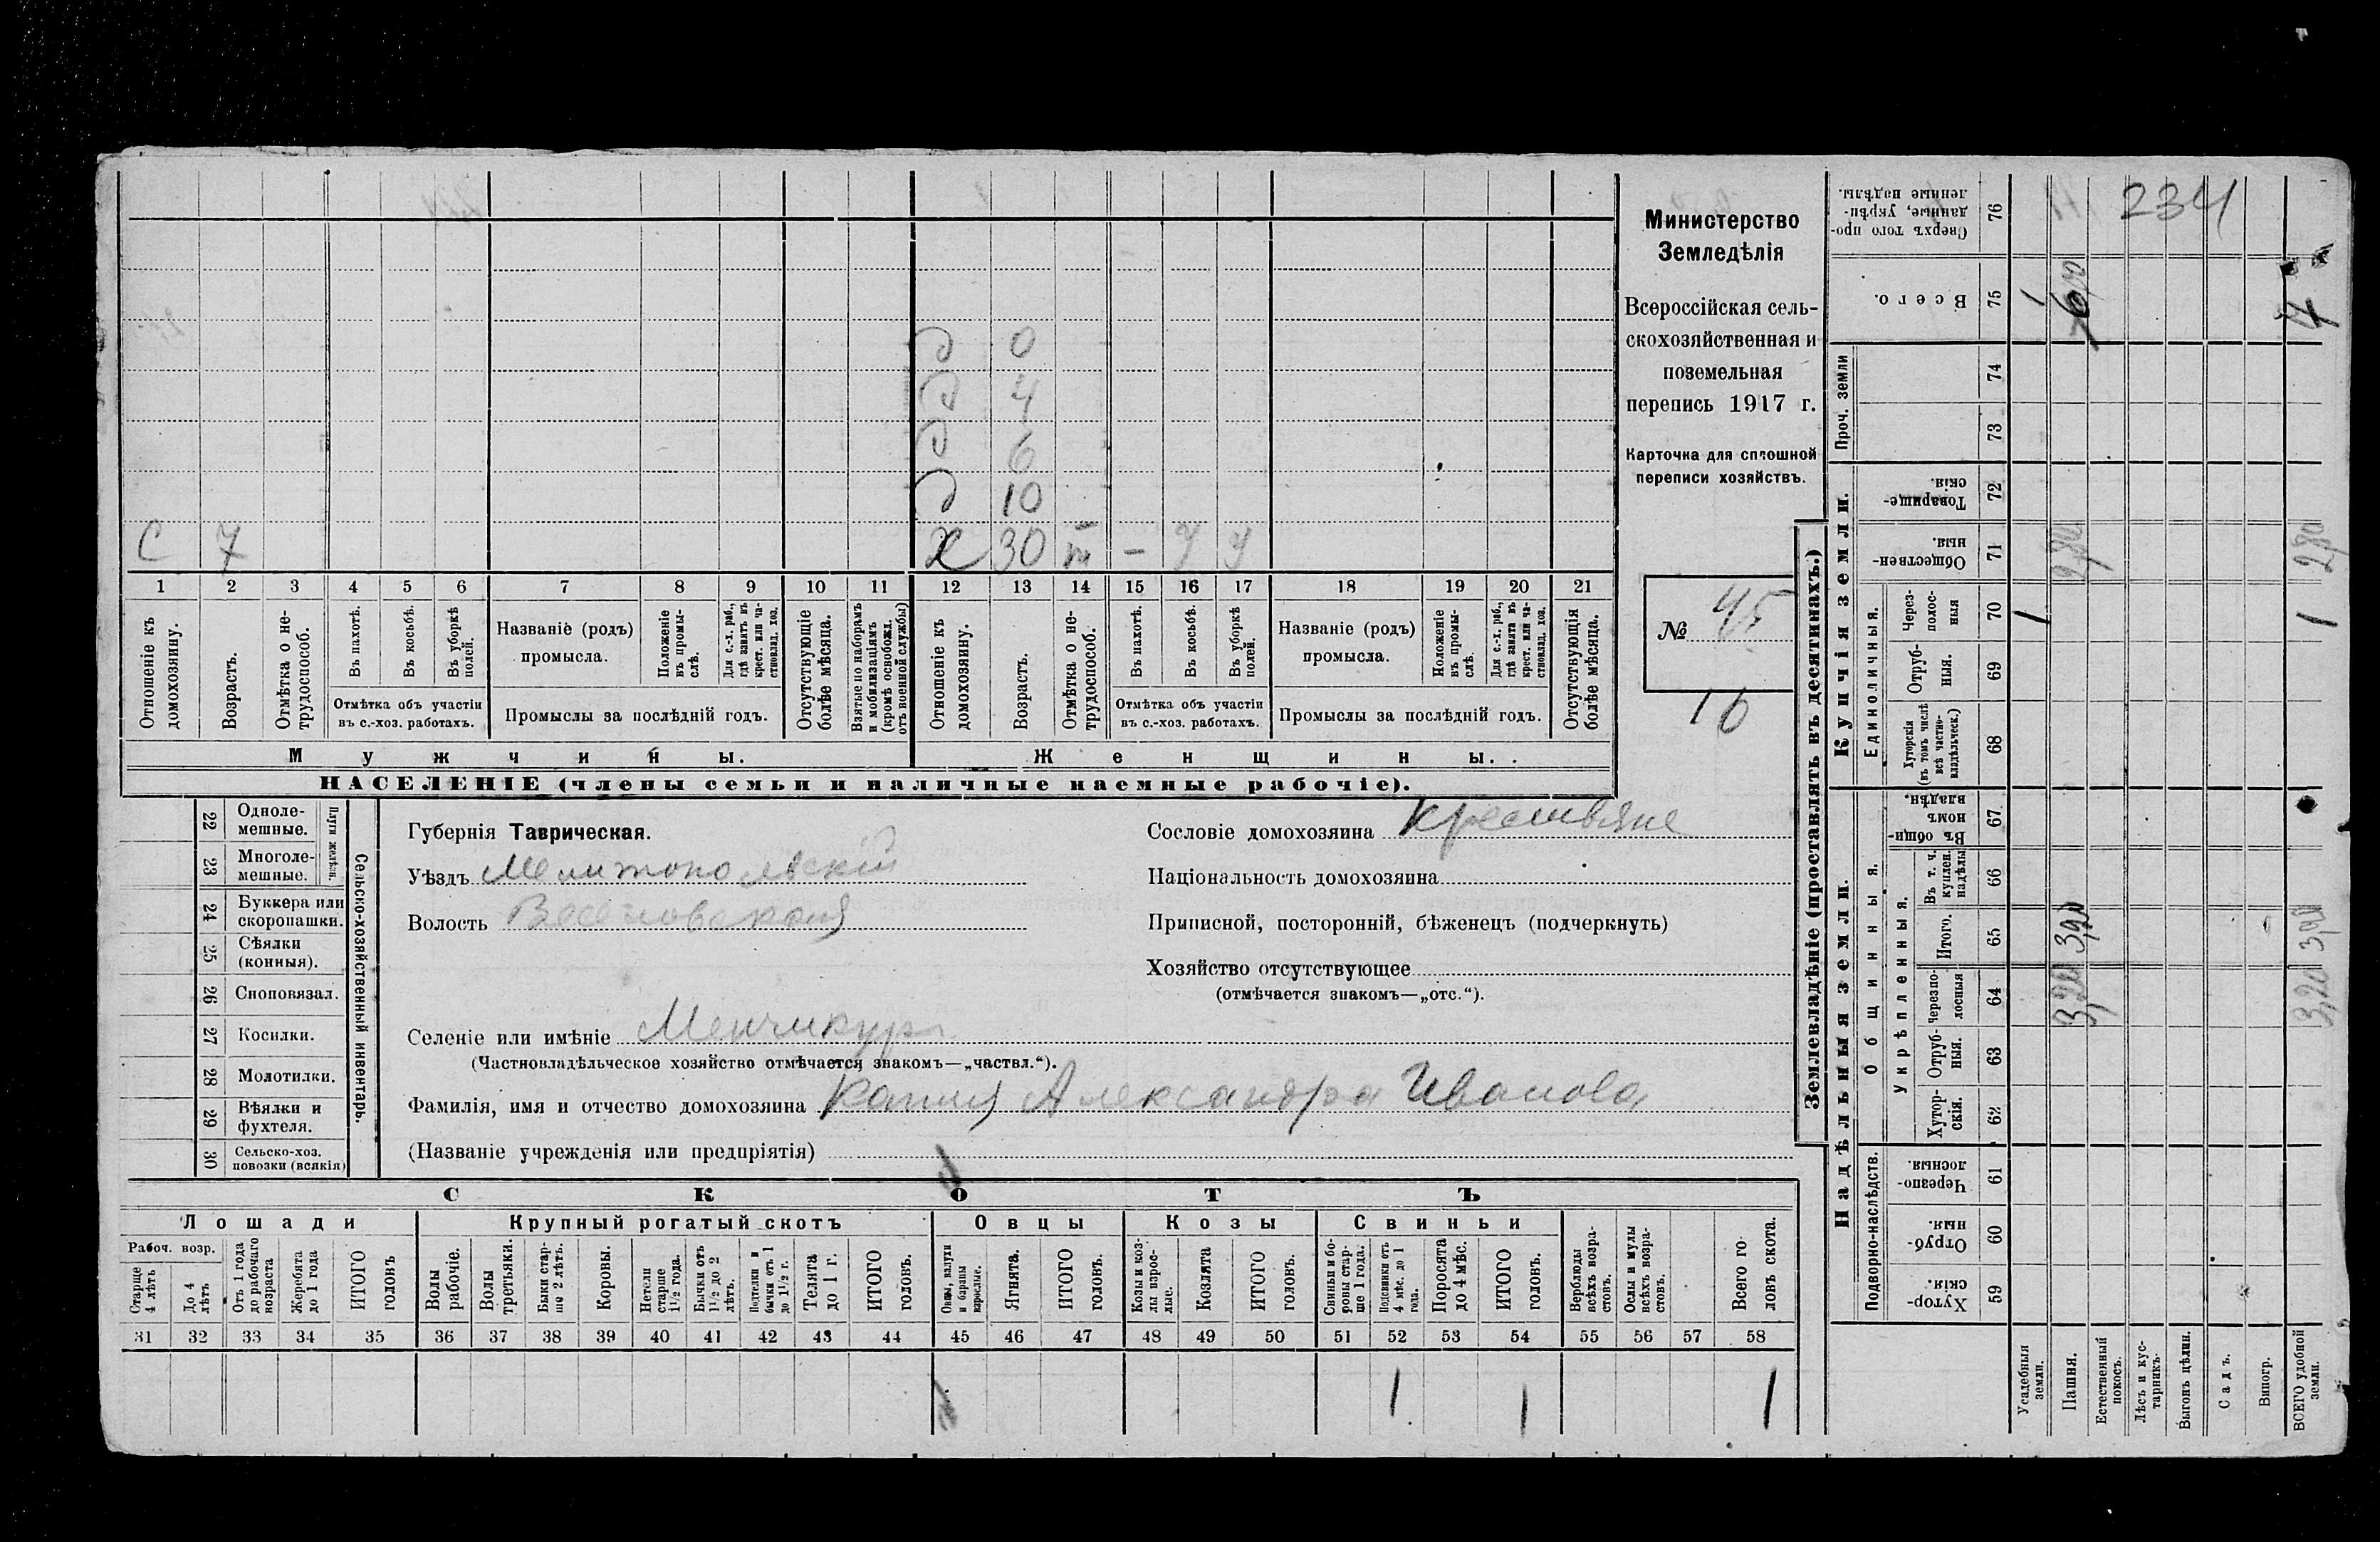 234
Министерство
Земледѣлія
Всероссійская сель-
скохозяйственная и
поземельная
перепись 1917 г.
Карточка для сплошной
переписи хозяйствъ.
№ 45
16
д 0
д 4
д 6
д 10
С 7 Х 30 – У У
1 2 3 4 5 6 7 8 9 10 11 12 13 14 15 16 17 18 19 20 21
Отношеніе къ домохозяину.
Возрастъ.
Отмѣтка о не-трудоспособ.
Въ пахотѣ.
Въ косьбѣ.
Въ уборкѣ полей.
Отмѣтка объ участіи
въ с.-хоз. работахъ.
Названіе (родъ)
промысла.
Положеніе въ промы-слѣ.
Для с.-х. раб., гдѣ занятъ въ крест. или ча-стновлад. хоз.
Промыслы за послѣдній годъ.
Отсутствующіе болѣе мѣсяца.
Взятые по наборамъ и мобилизаціямъ (кромѣ освобожд. отъ военной службы)
Отношеніе къ домохозяину.
Возрастъ.
Отмѣтка о не-трудоспособ.
Въ пахотѣ.
Въ косьбѣ.
Въ уборкѣ полей.
Отмѣтка объ участіи
въ с.-хоз. работахъ.
Названіе (родъ)
промысла.
Положеніе въ промы-слѣ.
Для с.-х. раб., гдѣ занята въ крест. или ча-стновлад. хоз.
Промыслы за послѣдній годъ.
Отсутствующія болѣе мѣсяца.
Мужчины. Женщины.
НАСЕЛЕНІЕ (члены семьи и наличные наемные рабочіе).
22 Одноле-мешные.
23 Многоле-мешные.
Плуги желѣзн.
24 Буккера или скоропашки.
25 Сѣялки (конныя).
26 Сноповязал.
27 Косилки.
28 Молотилки.
29 Вѣялки и фухтеля.
30 Сельско-хоз. повозки (всякія)
Сельско-хозяйственный инвентарь.
Губернія Таврическая.
Уѣздъ Мелитопольскій
Волость Веселовская
Сословіе домохозяина крестьяне
Національность домохозяина
Приписной, посторонній, бѣженецъ (подчеркнуть)
Хозяйство отсутствующее
(отмѣчается знакомъ—„отс.“).
Селеніе или имѣніе Менчикур
(Частновладѣльческое хозяйство отмѣчается знакомъ—„частвл.“).
Фамилія, имя и отчество домохозяина Александра Иванова
(Названіе учрежденія или предпріятія)
СКОТЪ
Лошади Крупный рогатый скотъ Овцы Козы Свиньи
Рабоч. возр.
Старше 4 лѣтъ
До 4 лѣтъ
Отъ 1 года до рабочаго возраста
Жеребята до 1 года
ИТОГО головъ
Волы рабочіе.
Волы третьяки.
Быки стар-ше 2 лѣтъ.
Коровы.
Нетели старше 1½ года.
Бычки отъ 1½ до 2 лѣтъ.
Подтелки и бычки отъ 1 до 1½ г.
Телята до 1 г.
ИТОГО головъ.
Овцы, валухи и бараны взрослые.
Ягнята.
ИТОГО головъ.
Козы и коз-лы взрос-лые.
Козлята
ИТОГО головъ.
Свиньи и бо-ровы стар-ше 1 года.
Подсвинки отъ 4 мѣс. до 1 года.
Поросята до 4 мѣс.
ИТОГО головъ.
Верблюды всѣхъ возра-стовъ.
Ослы и мулы всѣхъ возра-стовъ.
Всего го-ловъ скота.
31 32 33 34 35 36 37 38 39 40 41 42 43 44 45 46 47 48 49 50 51 52 53 54 55 56 57 58
1 1 1
Землевладѣніе (проставлять въ десятинахъ.)
Надѣльныя земли. Купчія земли. Проч. земли
Подворно-наслѣдств.
Общинныя.
Укрѣпленныя.
Единоличныя.
Хутор-скія. 59
Отруб-ныя. 60
Черезпо-лосныя. 61
Хутор-скія. 62
Отруб-ныя. 63
Черезпо-лосныя 64
Итого. 65
Въ т. ч. куплен. надѣлы 66
Въ общин-номъ владѣн. 67
Хуторскія (въ томъ числѣ всѣ частно-владѣльческ.) 68
Отруб-ныя. 69
Через-полос-ныя 70
Обществен-ныя. 71
Товарище-скія. 72
73
74
Всего. 75
Сверхъ того про-данные, укрѣп-ленные надѣлы. 76
Усадебныя земли. 1
Пашня. 3,20
Естественный покосъ.
Лѣсъ и кус-тарникъ.
Выгонъ цѣлин.
Садъ.
Виногр.
ВСЕГО удобной земли. 3,20 1 2,80 7